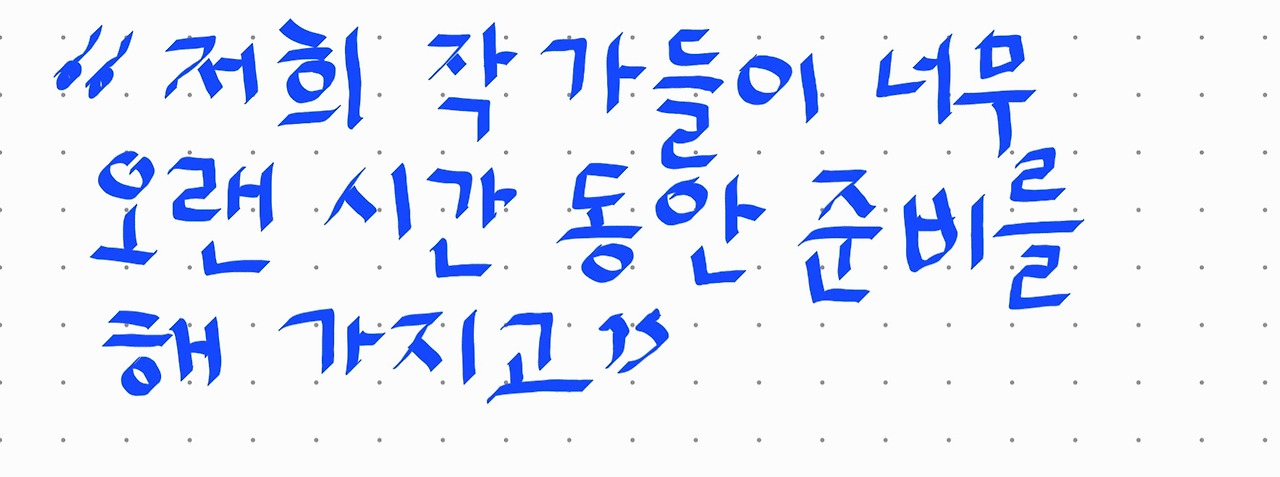 “저희 작가들이 너무
오랜 시간 동안 준비를
해 가지고”